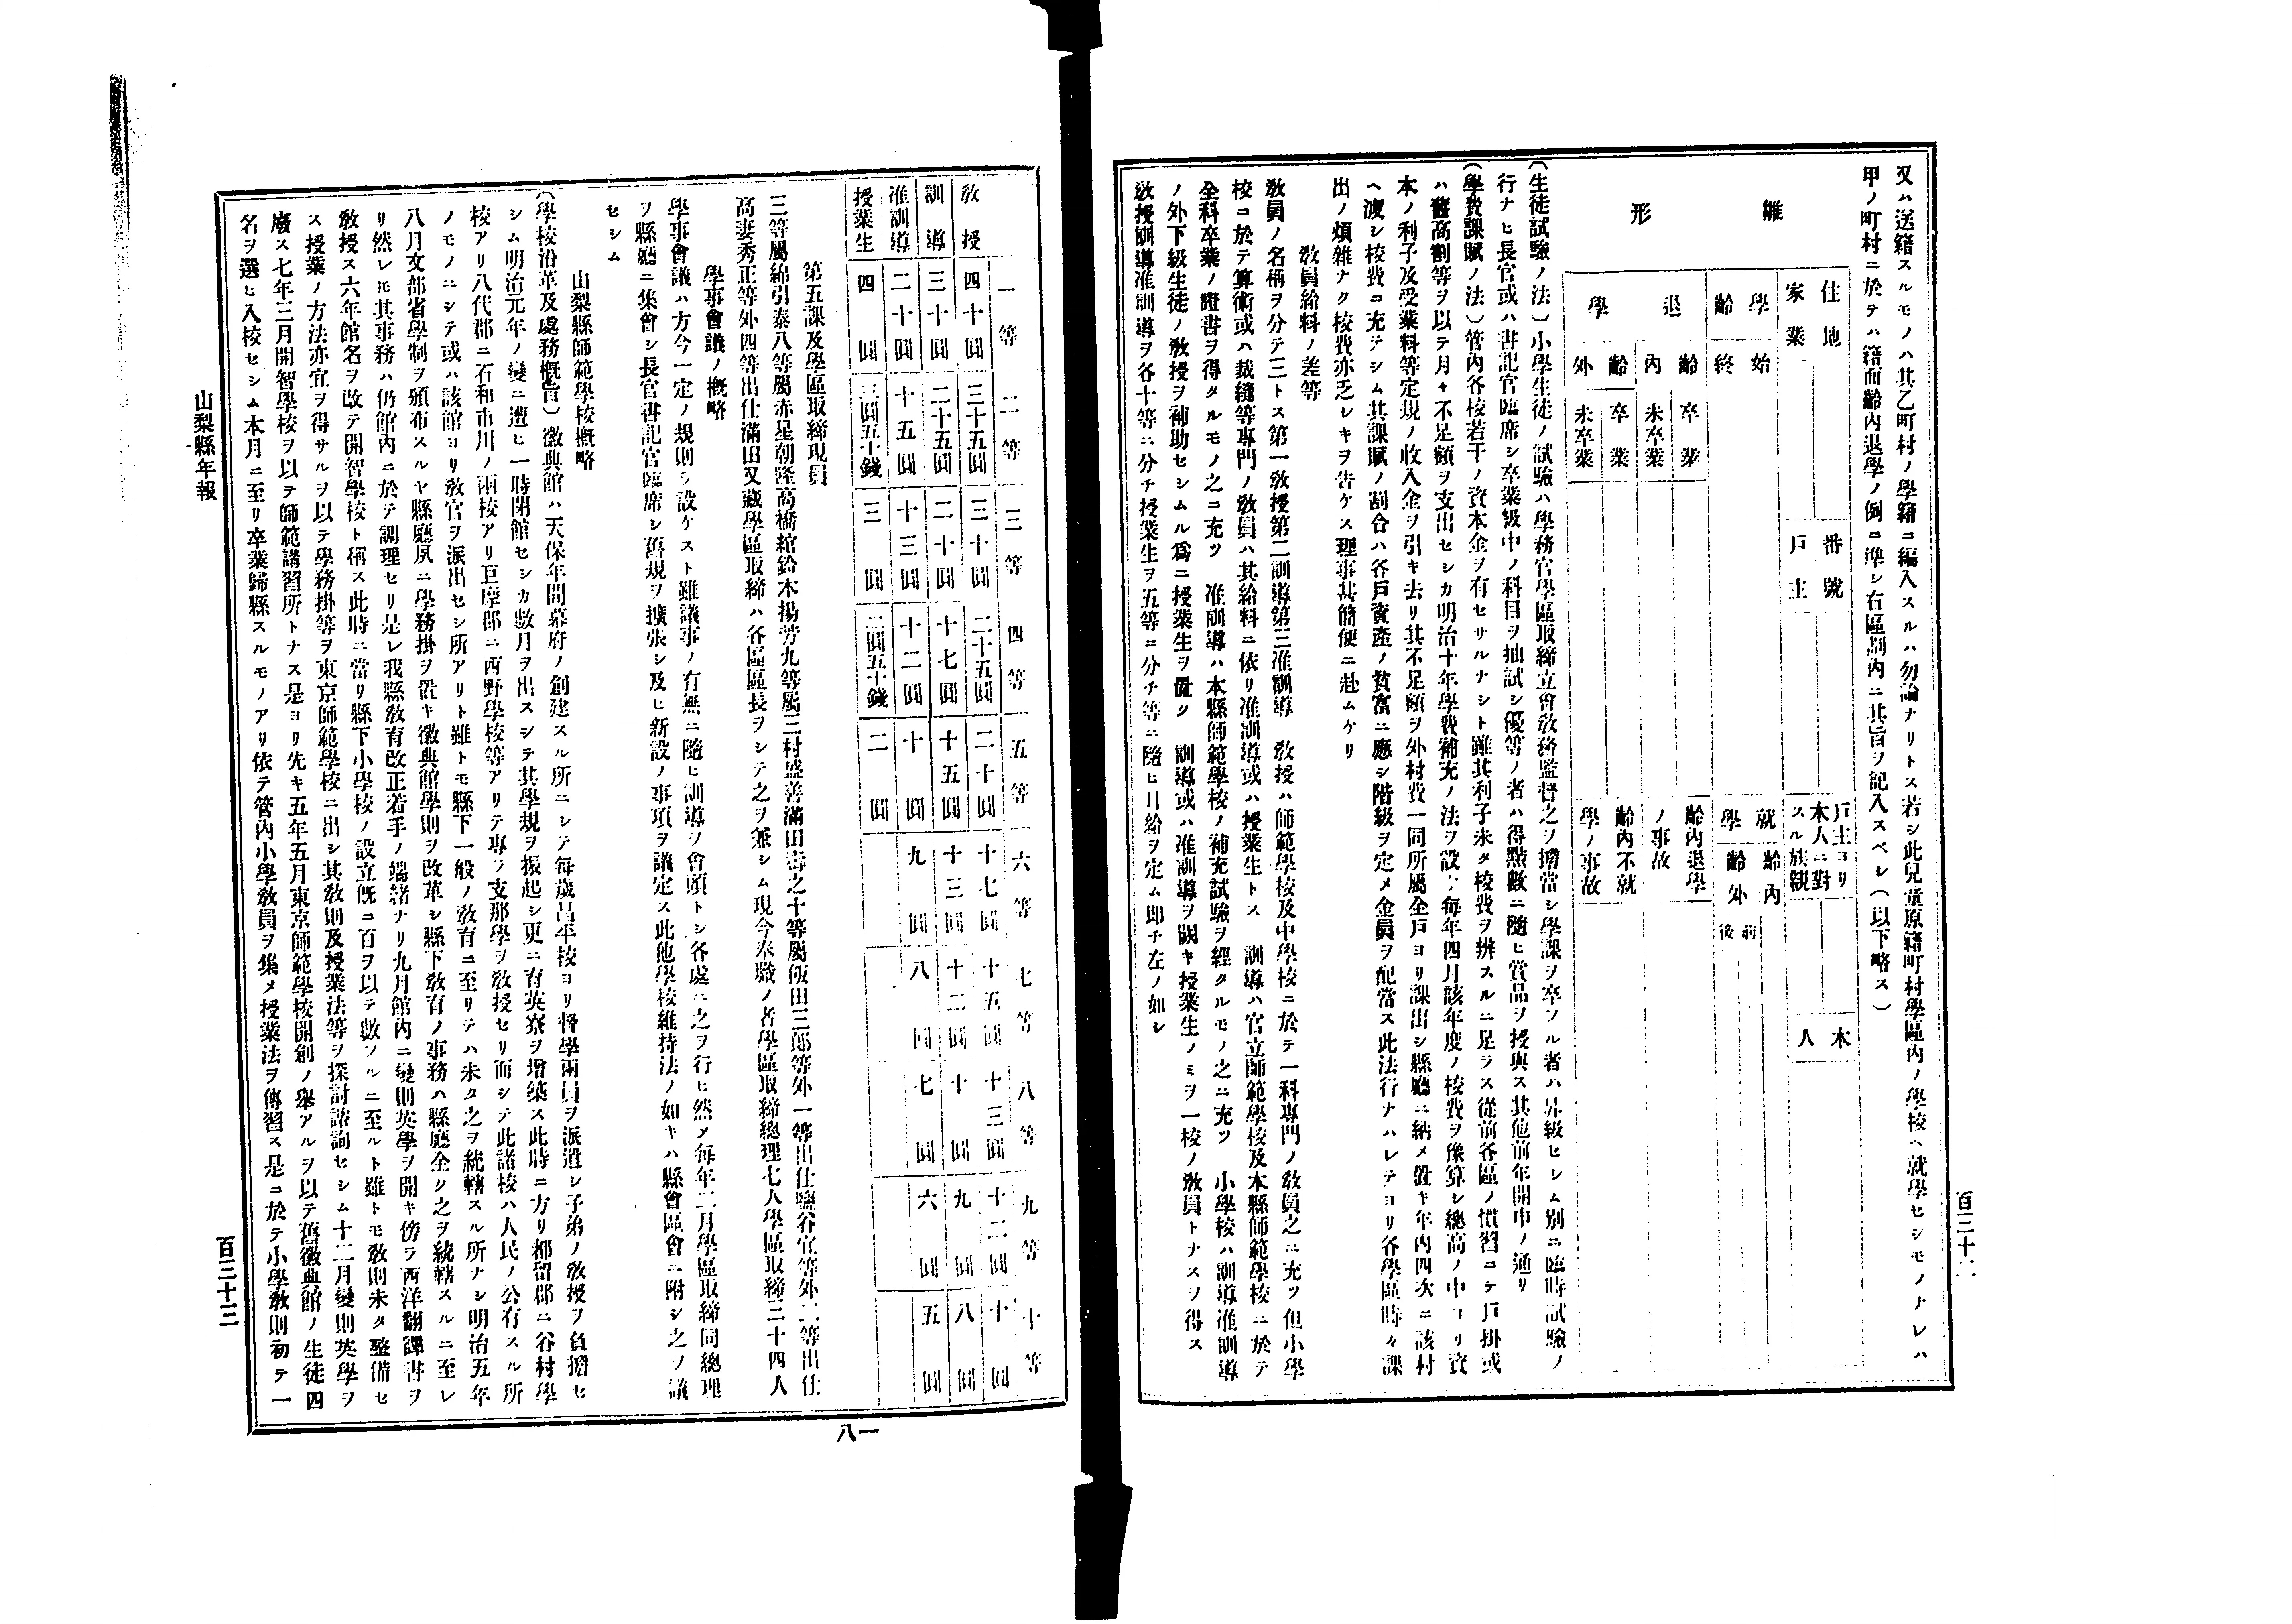 又ハ送籍スルモノハ其乙町村ノ學籍ニ編入スルハ勿論ナリトス若シ此兒童原籍町村學區内ノ學校ヘ就學セシモノナレハ
甲ノ町村ニ於テハ籍面齡内退學ノ例ニ準シ右區劃内ニ其旨ヲ記入スベシ(以下略ス)
雛形
住地 番號 戸主ヨリ本人ニ對スル族親 本人
家業 戸主
學齡 始 終 就學 齡内 齡外 前 後
退學 齡内 卒業 未卒業 齡内退學ノ事故
齡外 卒業 未卒業 齡内不就學ノ事故
(生徒試驗ノ法)小學生徒ノ試驗ハ學務官學區取締立會敎務監督之ヲ擔當シ學課ヲ卒フル者ハ昇級セシム別ニ臨時試驗ノ
行ナヒ長官或ハ書記官臨席シ卒業級中ノ科目ヲ抽試シ優等ノ者ハ得點數ニ隨ヒ賞品ヲ授與ス其他前年開申ノ通リ
(學費課賦ノ法)管内各校若干ノ資本金ヲ有セサルナシト雖其利子未タ校費ヲ辨スルニ足ラス從前各區ノ慣習ニテ戸掛或
ハ舊高割等ヲ以テ月々不足額ヲ支出セシカ明治十年學費補充ノ法ヲ設ケ毎年四月該年度ノ校費ヲ豫算シ總高ノ中ヨリ資
本ノ利子及受業料等定規ノ收入金ヲ引キ去リ其不足額ヲ外村費一同所屬全戸ヨリ課出シ縣廳ニ納メ置キ年内四次ニ該村
ヘ渡シ校費ニ充テシム其課賦ノ割合ハ各戸資產ノ貧富ニ應シ階級ヲ定メ金員ヲ配當ス此法行ナハレテヨリ各學區時々課
出ノ煩雜ナク校費亦乏シキヲ告ケス理事其簡便ニ赴ムケリ
敎員給料ノ差等
敎員ノ名稱ヲ分テ三トス第一敎授第二訓導第三准訓導 敎授ハ師範學校及中學校ニ於テ一科專門ノ敎員之ニ充ツ但小學
校ニ於テ算術或ハ裁縫等專門ノ敎員ハ其給料ニ依リ准訓導或ハ授業生トス 訓導ハ官立師範學校及本縣師範學校ニ於テ
全科卒業ノ證書ヲ得タルモノ之ニ充ツ 准訓導ハ本縣師範學校ノ補充試驗ヲ經タルモノ之ニ充ツ 小學校ハ訓導准訓導
ノ外下級生徒ノ敎授ヲ補助セシムル爲ニ授業生ヲ置ク 訓導或ハ准訓導ヲ闕キ授業生ノミヲ一校ノ敎員トナスヲ得ス
敎授訓導准訓導ヲ各十等ニ分チ授業生ヲ五等ニ分チ等ニ隨ヒ月給ヲ定ム即チ左ノ如シ
一等 二等 三等 四等 五等 六等 七等 八等 九等 十等
敎授 四十圓 三十五圓 三十圓 二十五圓 二十圓 十七圓 十五圓 十三圓 十二圓 十圓
訓導 三十圓 二十五圓 二十圓 十七圓 十五圓 十三圓 十二圓 十圓 九圓 八圓
准訓導 二十圓 十五圓 十三圓 十二圓 十圓 九圓 八圓 七圓 六圓 五圓
授業生 四圓 三圓五十錢 三圓 二圓五十錢 二圓
第五課及學區取締現員
三等屬綿引泰八等屬赤星朝隆高橋綰鈴木揚芳九等屬三村盛善滿田壽之十等屬飯田三郎等外一等出仕鹽谷官等外二等出仕
高妻秀正等外四等出仕滿田又藏學區取締ハ各區區長ヲシテ之ヲ兼シム現今奉職ノ者學區取締總理七人學區取締三十四人
學事會議ノ概略
學事會議ハ方今一定ノ規則ヲ設ケスト雖議事ノ有無ニ隨ヒ訓導ヲ會頭トシ各處ニ之ヲ行ヒ然メ毎年二月學區取締同總理
ヲ縣廳ニ集會シ長官書記官臨席シ舊規ヲ擴張シ及ヒ新設ノ事項ヲ議定ス此他學校維持法ノ如キハ縣會區會ニ附シ之ヲ議
セシム
山梨縣師範學校概略
(學校沿革及處務概旨)徽典館ハ天保年間幕府ノ創建スル所ニシテ毎歲昌平校ヨリ督學兩員ヲ派遣シ子弟ノ敎授ヲ負擔セ
シム明治元年ノ變ニ遭ヒ一時閉館セシカ數月ヲ出スシテ其學規ヲ振起シ更ニ育英寮ヲ增築ス此時ニ方リ都留郡ニ谷村學
校アリ八代郡ニ石和市川ノ兩校アリ巨摩郡ニ西野學校等アリテ專ラ支那學ヲ敎授セリ而シテ此諸校ハ人民ノ公有スル所
ノモノニシテ或ハ該館ヨリ敎官ヲ派出セシ所アリト雖トモ縣下一般ノ敎育ニ至リテハ未タ之ヲ統轄スル所ナシ明治五年
八月文部省學制ヲ頒布スルヤ縣廳夙ニ學務掛ヲ置キ徽典館學則ヲ改革シ縣下敎育ノ事務ハ縣廳全ク之ヲ統轄スルニ至レ
リ然レモ其事務ハ仍館内ニ於テ調理セリ是レ我縣敎育改正若手ノ端緒ナリ九月館内ニ變則英學ヲ開キ傍ラ西洋翻譯書ヲ
敎授ス六年館名ヲ改テ開智學校ト稱ス此時ニ當リ縣下小學校ノ設立旣ニ百ヲ以テ數フルニ至ルト雖トモ敎則未タ整備セ
ス授業ノ方法亦宜ヲ得サルヲ以テ學務掛等ヲ東京師範學校ニ出シ其敎則及授業法等ヲ探討諮詢セシム十二月變則英學ヲ
廢ス七年三月開智學校ヲ以テ師範講習所トナス是ヨリ先キ五年五月東京師範學校開創ノ擧アルヲ以テ舊徽典館ノ生徒四
名ヲ選ヒ入校セシム本月ニ至リ卒業歸縣スルモノアリ依テ管内小學敎員ヲ集メ授業法ヲ傳習ス是ニ於テ小學敎則初テ一
山梨縣年報
百三十三
一八